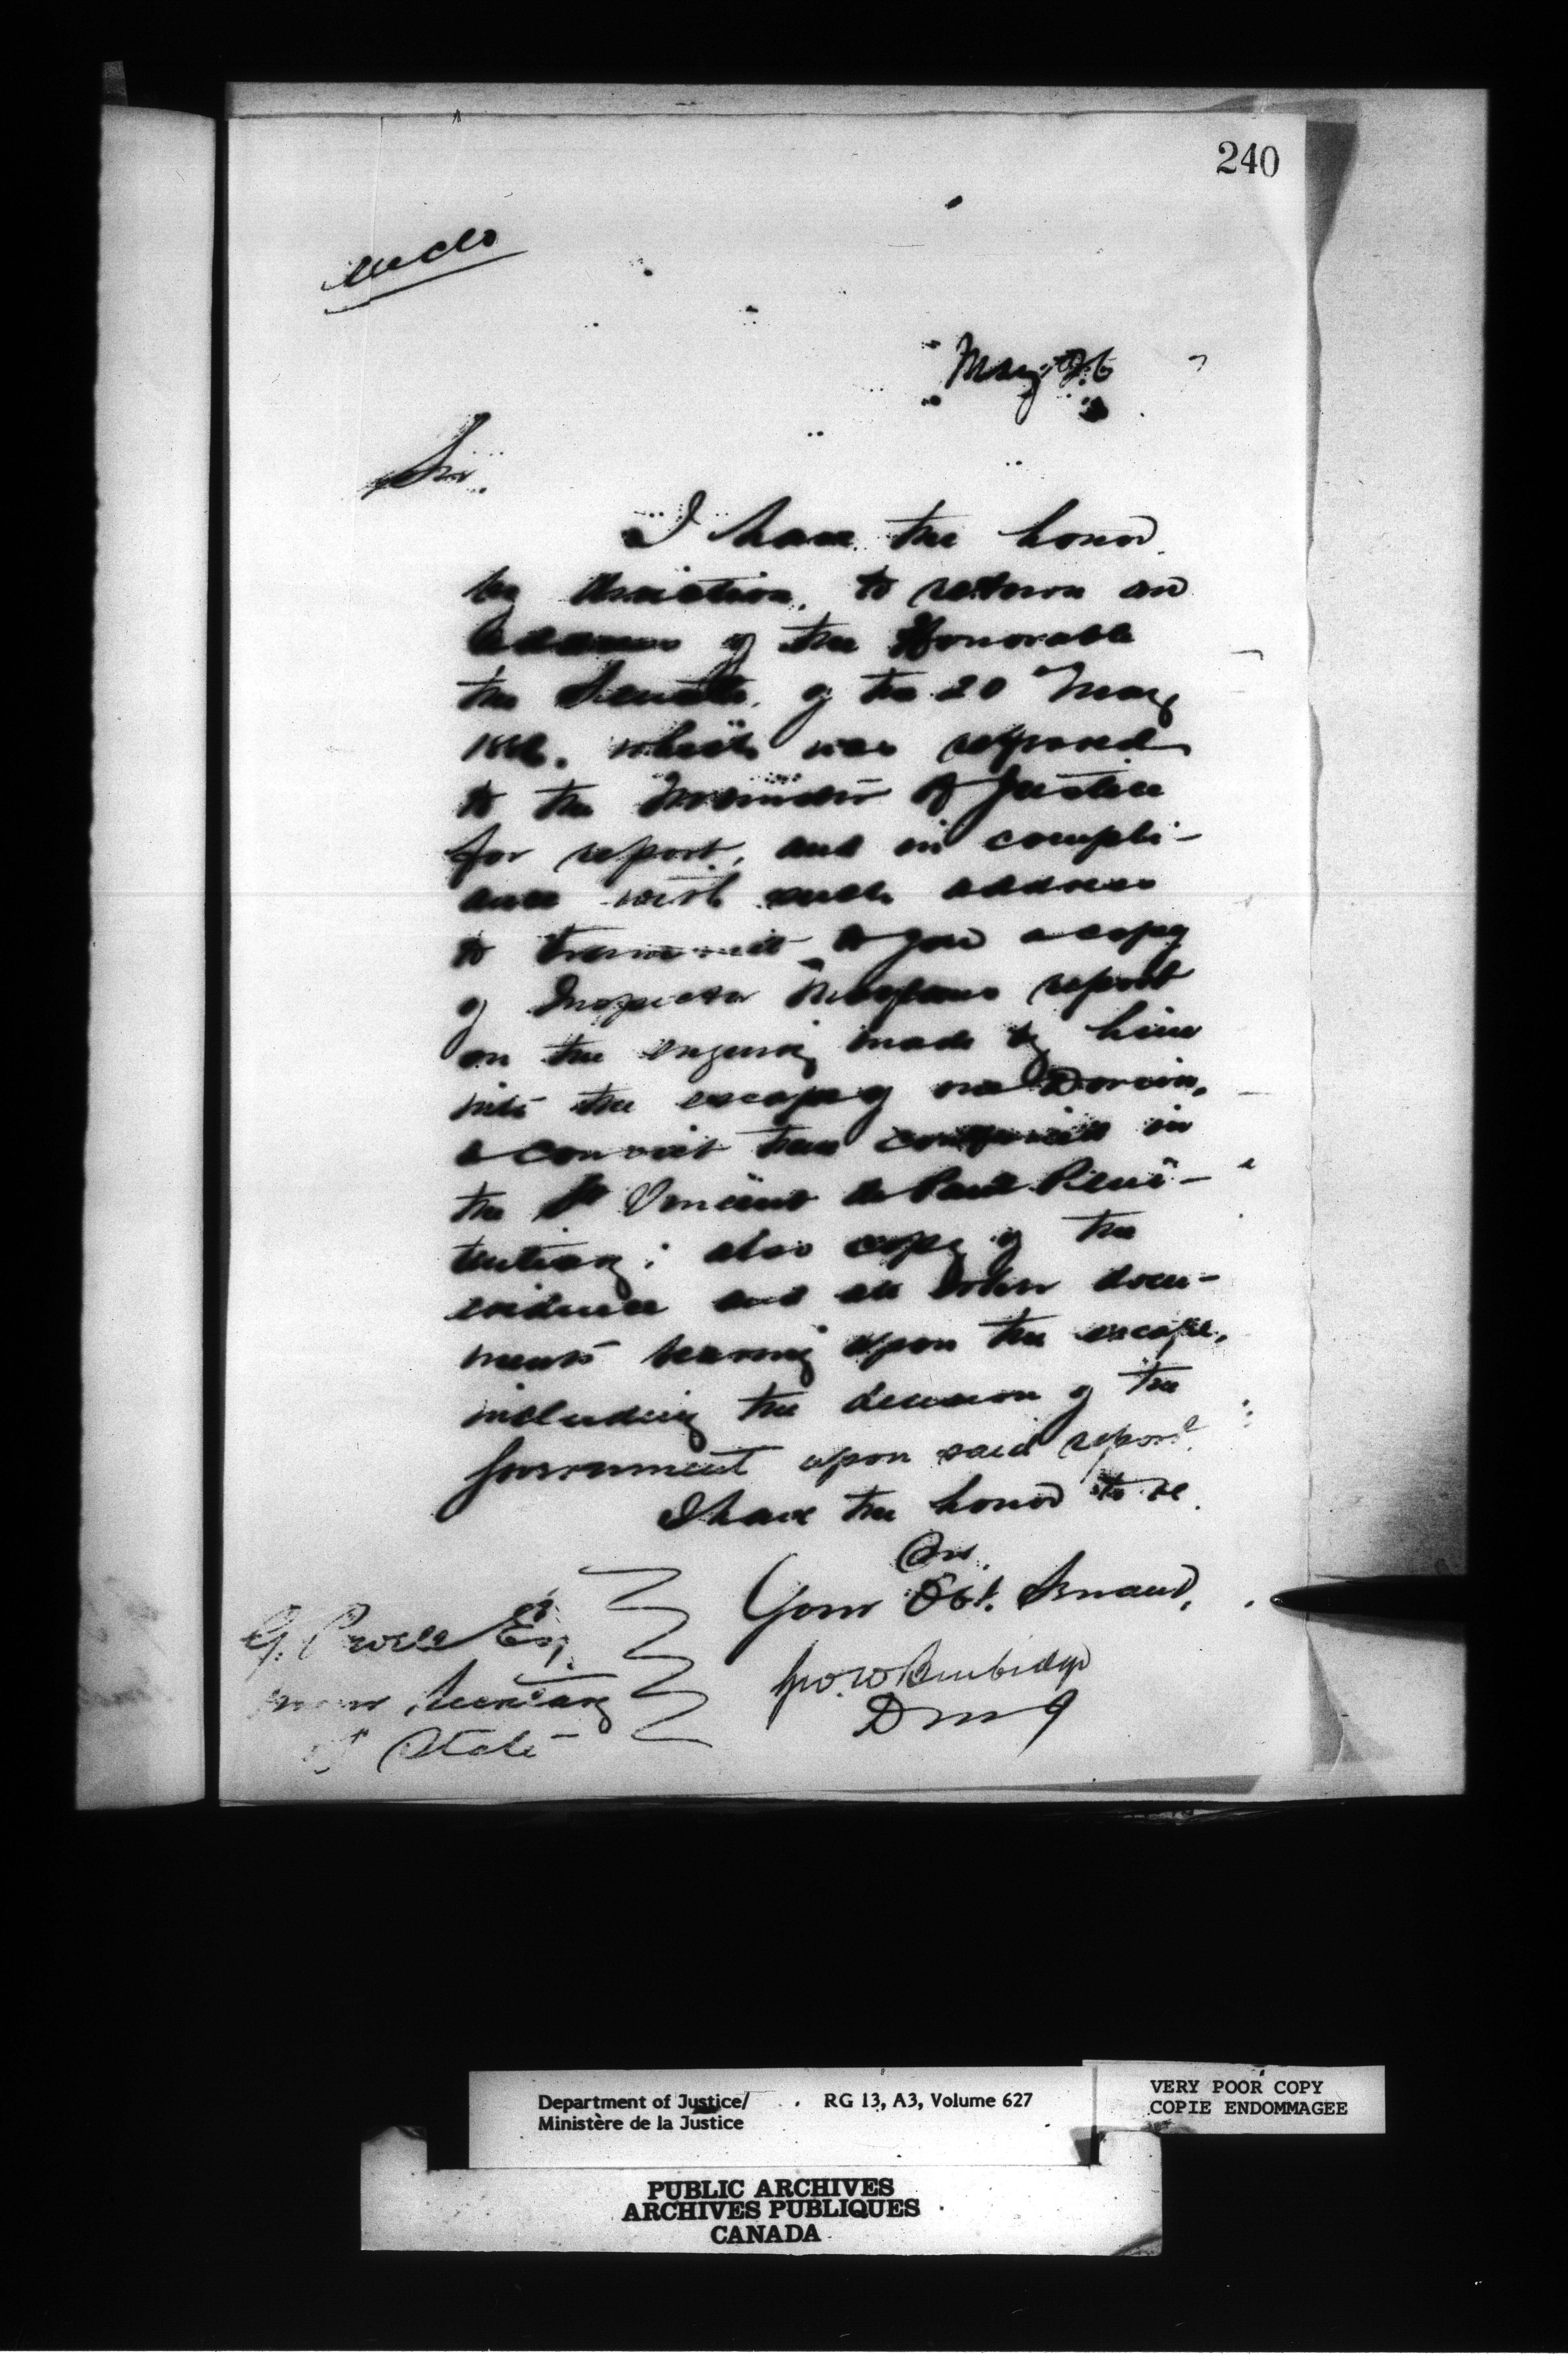 240
encls
May 26
Sir,
I have the honor
by direction, to return an
address of the Honorable
the Senate, of the 20 May
1886. which was referred
to the Minister of Justice
for report, and in compli-
ance with such address
to transmit to you a copy
of Inspector Moylans report
on the enquiry made by him
into the escape of one Dorion,
a convict then confined in
the St Vincent de Paul Peni-
tentiary; also copy of the
evidence and all other docu-
ments bearing upon the escape,
including the decision of the
Government upon said report.
I have the honor to be
Sir,
Your Obt. Servant,
Geo. W Burbidge
D M J
G. Powell Esq
Under Secretary
of State
Department of Justice/
Ministère de la Justice
RG 13, A3, Volume 627
VERY POOR COPY
COPIE ENDOMMAGEE
PUBLIC ARCHIVES
ARCHIVES PUBLIQUES
CANADA